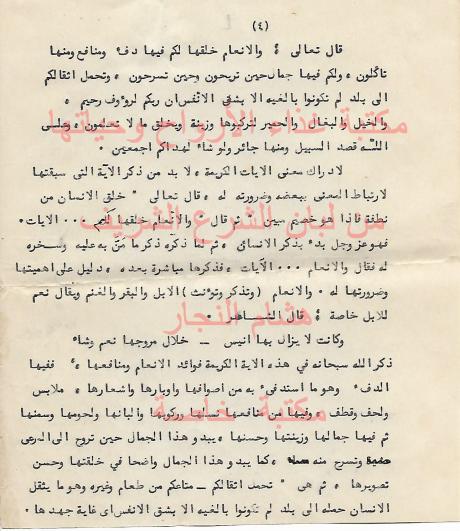 (٤)
قال تعالى : والانعام خلقها لكم فيها دفء ومنافع ومنها
تأكلون ٠ ولكم فيها جمال حين تريحون وحين تسرحون ٠ وتحمل اثقالكم
الى بلد لم تكونوا بالغيه الا بشق الانفس ان ربكم لرؤوف رحيم ٠
والخيل والبغال والحمير لتركبوها وزينة ويخلق ما لا تعلمون ٠ وعلى
اللّه قصد السبيل ومنها جائر ولو شاء لهداكم اجمعين ٠
لادراك معنى الايات الكريمة ٠ لا بد من ذكر الآية التي سبقتها
لارتباط المعنى ببعضه وضرورته له ٠ قال تعالى " خلق الانسان من
نطفة فاذا هو خصيم مبين " ثم قال " والانعام خلقها لكم ٠٠٠ الايات ٠
فهو عز وجل بدء بذكر الانسان ٠ ثم لما ذكره ذكر ما منّ به عليه وسخره
له فقال والانعام ٠٠٠ الآيات ٠ فذكرها مباشرة بعده ٠ دليل على اهميتها
وضرورتها له ٠ والانعام (وتذكر وتؤنث) الابل والبقر والغنم ويقال نعم
للابل خاصة : قال الشاعر
وكانت لا يزال بها انيس — خلال مروجها نعم وشاء
ذكر الله سبحانه في هذه الاية الكريمة فوائد الانعام ومنافعها ٠ ففيها
الدفء وهو ما استدفيء به من اصوافها واوبارها واشعارها ٠ ملابس
ولحف وقطف ٠ وفيها من منافعها نسلها وركوبها والبانها ولحومها وسمنها
ثم فيها جمالها وزينتها وحسنها ٠ يبدو هذا الجمال حين تروح الى المرعى
وتسرح منه ٠ كما يبدو هذا الجمال واضحا في خلقتها وحسن
تصويرها ٠ ثم هي " تحمل اثقالكم — متاعكم من طعام وغيره وهو ما يثقل
الانسان حمله الى بلد لم تكونوا بالغيه الا بشق الانفس اى غاية جهدها ٠
مكتبة غذاء الأرواح وحياتها
من لبان الشرع الشريف
هشام النجار
مكتبة خاصة